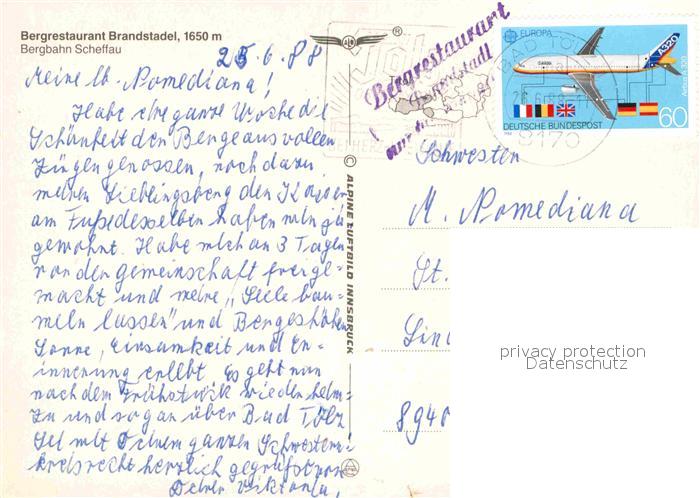 Bergrestaurant Brandstadel, 1650 m
Bergbahn Scheffau
25.6.88
Meine lb. Nomediana!
Habe eine ganze Woche die
Schönheit der Berge aus vollen
Zügen genossen, noch dazu
meinen Lieblingsberg den Kaiser
am Fuße desselben haben wir ja
gewohnt. Habe mich an 3 Tagen
von der Gemeinschaft freige-
macht und meine "Seele bau-
meln lassen" und Bergeshöhen
Sonne, Einsamkeit und Er-
innerung erlebt. Es geht nun
nach dem Frühstück wieder heim-
zu und sogar über Bad Tölz
Sei mit Deinem ganzen Schwestern-
kreis recht herzlich gegrüßt von
Deiner Viktoria.
© ALPINE LUFTBILD INNSBRUCK
Bergrestaurant
Brandstadl
EUROPA
A320
Airbus A320
DEUTSCHE BUNDESPOST
60
BAD TÖLZ
8170
Schwester
M. Nomediana
St.
8940
privacy protection
Datenschutz